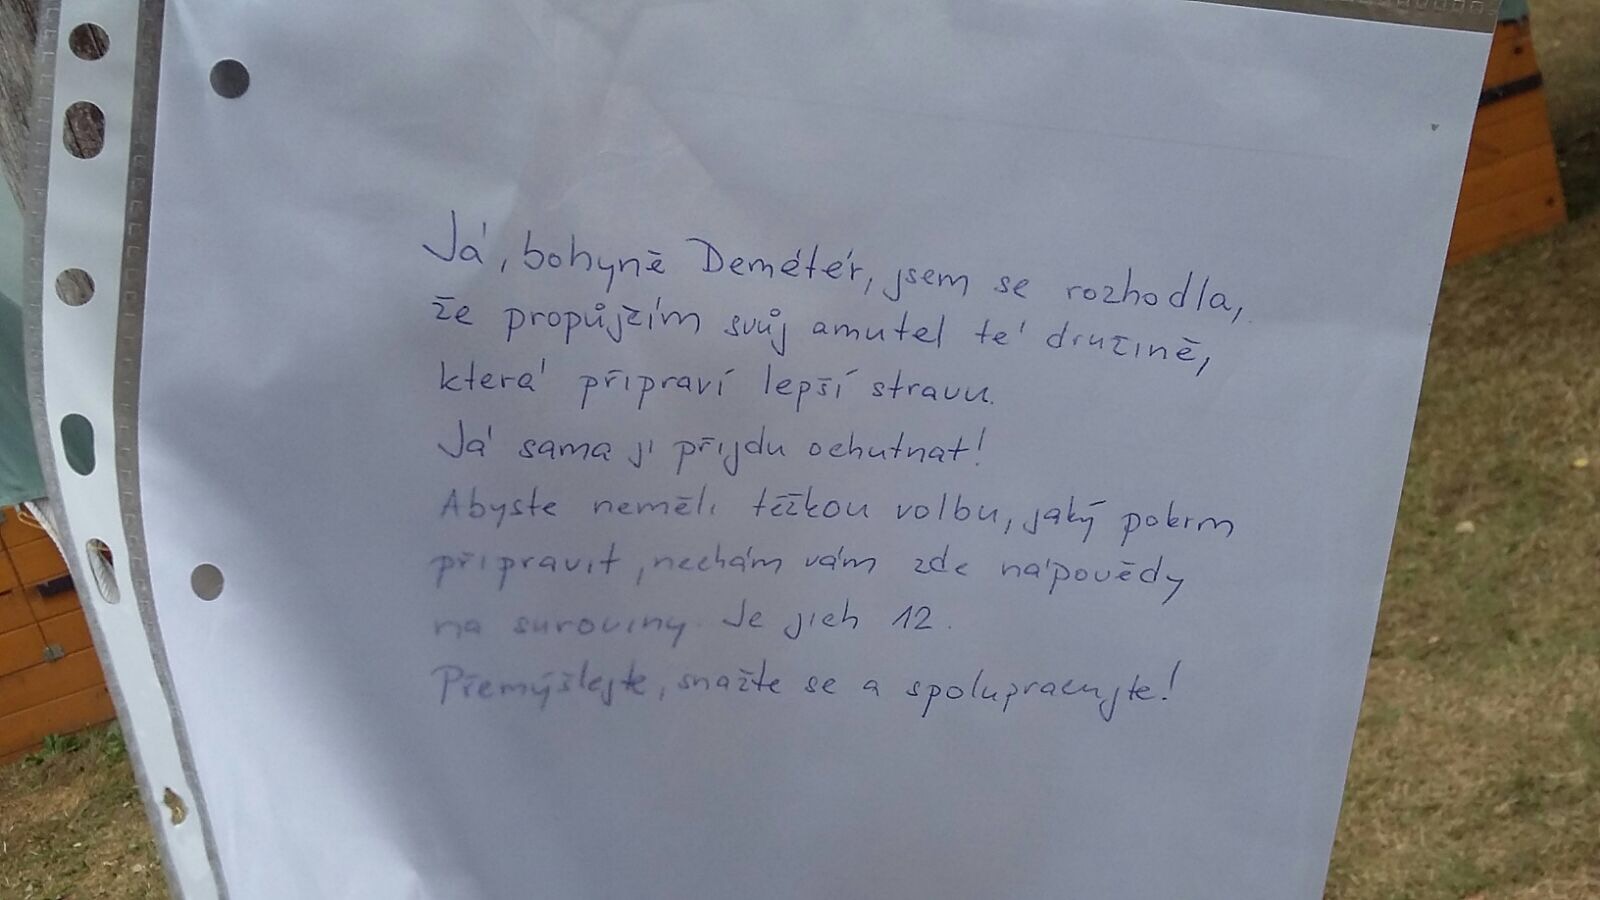 Já, bohyně Deméter, jsem se rozhodla,
že propůjčím svůj amutel té družině,
která připraví lepší stravu.
Já sama ji přijdu ochutnat!
Abyste neměli těžkou volbu, jaký pokrm
připravit, nechám vám zde nápovědy
na suroviny. Je jich 12.
Přemýšlejte, snažte se a spolupracujte!